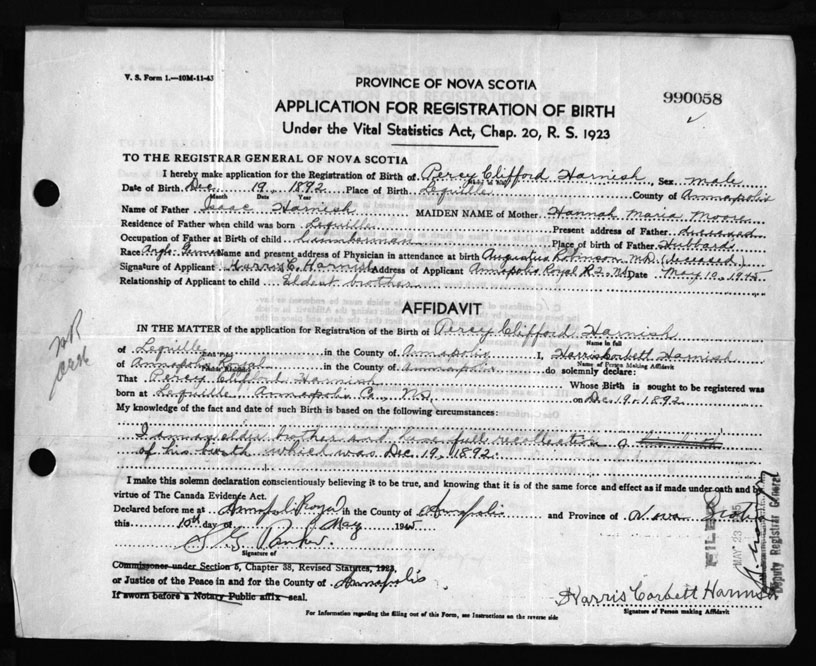 V. S. Form 1.—10M-11-43
PROVINCE OF NOVA SCOTIA
990058
APPLICATION FOR REGISTRATION OF BIRTH
Under the Vital Statistics Act, Chap. 20, R. S. 1923
TO THE REGISTRAR GENERAL OF NOVA SCOTIA
I hereby make application for the Registration of Birth of Percy Clifford Harnish, Sex male
Date of Birth Dec. 19 1892 Place of Birth Lequille County of Annapolis
Month Date Year
Name of Father Isaac Harnish MAIDEN NAME of Mother Hannah Maria Moore
Residence of Father when child was born Lequille Present address of Father deceased
Occupation of Father at Birth of child Lumberman Place of birth of Father Hubbards
Race Anglo-German Name and present address of Physician in attendance at birth Augustus Robinson M.D. (deceased)
Signature of Applicant Harris C. Harnish Address of Applicant Annapolis Royal R2. NS Date May 10, 1945
Relationship of Applicant to child Eldest brother
AFFIDAVIT
IN THE MATTER of the application for Registration of the Birth of Percy Clifford Harnish
Name in full
of Lequille in the County of Annapolis I, Harris Corbett Harnish
Name of Person Making Affidavit
of Annapolis Royal in the County of Annapolis do solemnly declare:
That Percy Clifford Harnish Whose Birth is sought to be registered was
born at Lequille Annapolis Co., NS on Dec. 19. 1892
My knowledge of the fact and date of such Birth is based on the following circumstances:
I am an elder brother and have full recollection of
of his birth which was Dec. 19, 1892.
I make this solemn declaration conscientiously believing it to be true, and knowing that it is of the same force and effect as if made under oath and by
virtue of The Canada Evidence Act.
Declared before me at Annapolis Royal in the County of Annapolis and Province of Nova Scotia
this 10th day of May 1945
S G Parker
Signature of
Commissoner under Section 5, Chapter 38, Revised Statutes, 1923,
or Justice of the Peace in and for the County of Annapolis
If sworn before a Notary Public affix seal.
Harris Corbett Harnish
Signature of Person making Affidavit
For Information regarding the filling out of this Form, see Instructions on the reverse side
FILED
MAY 23
Deputy Registrar General